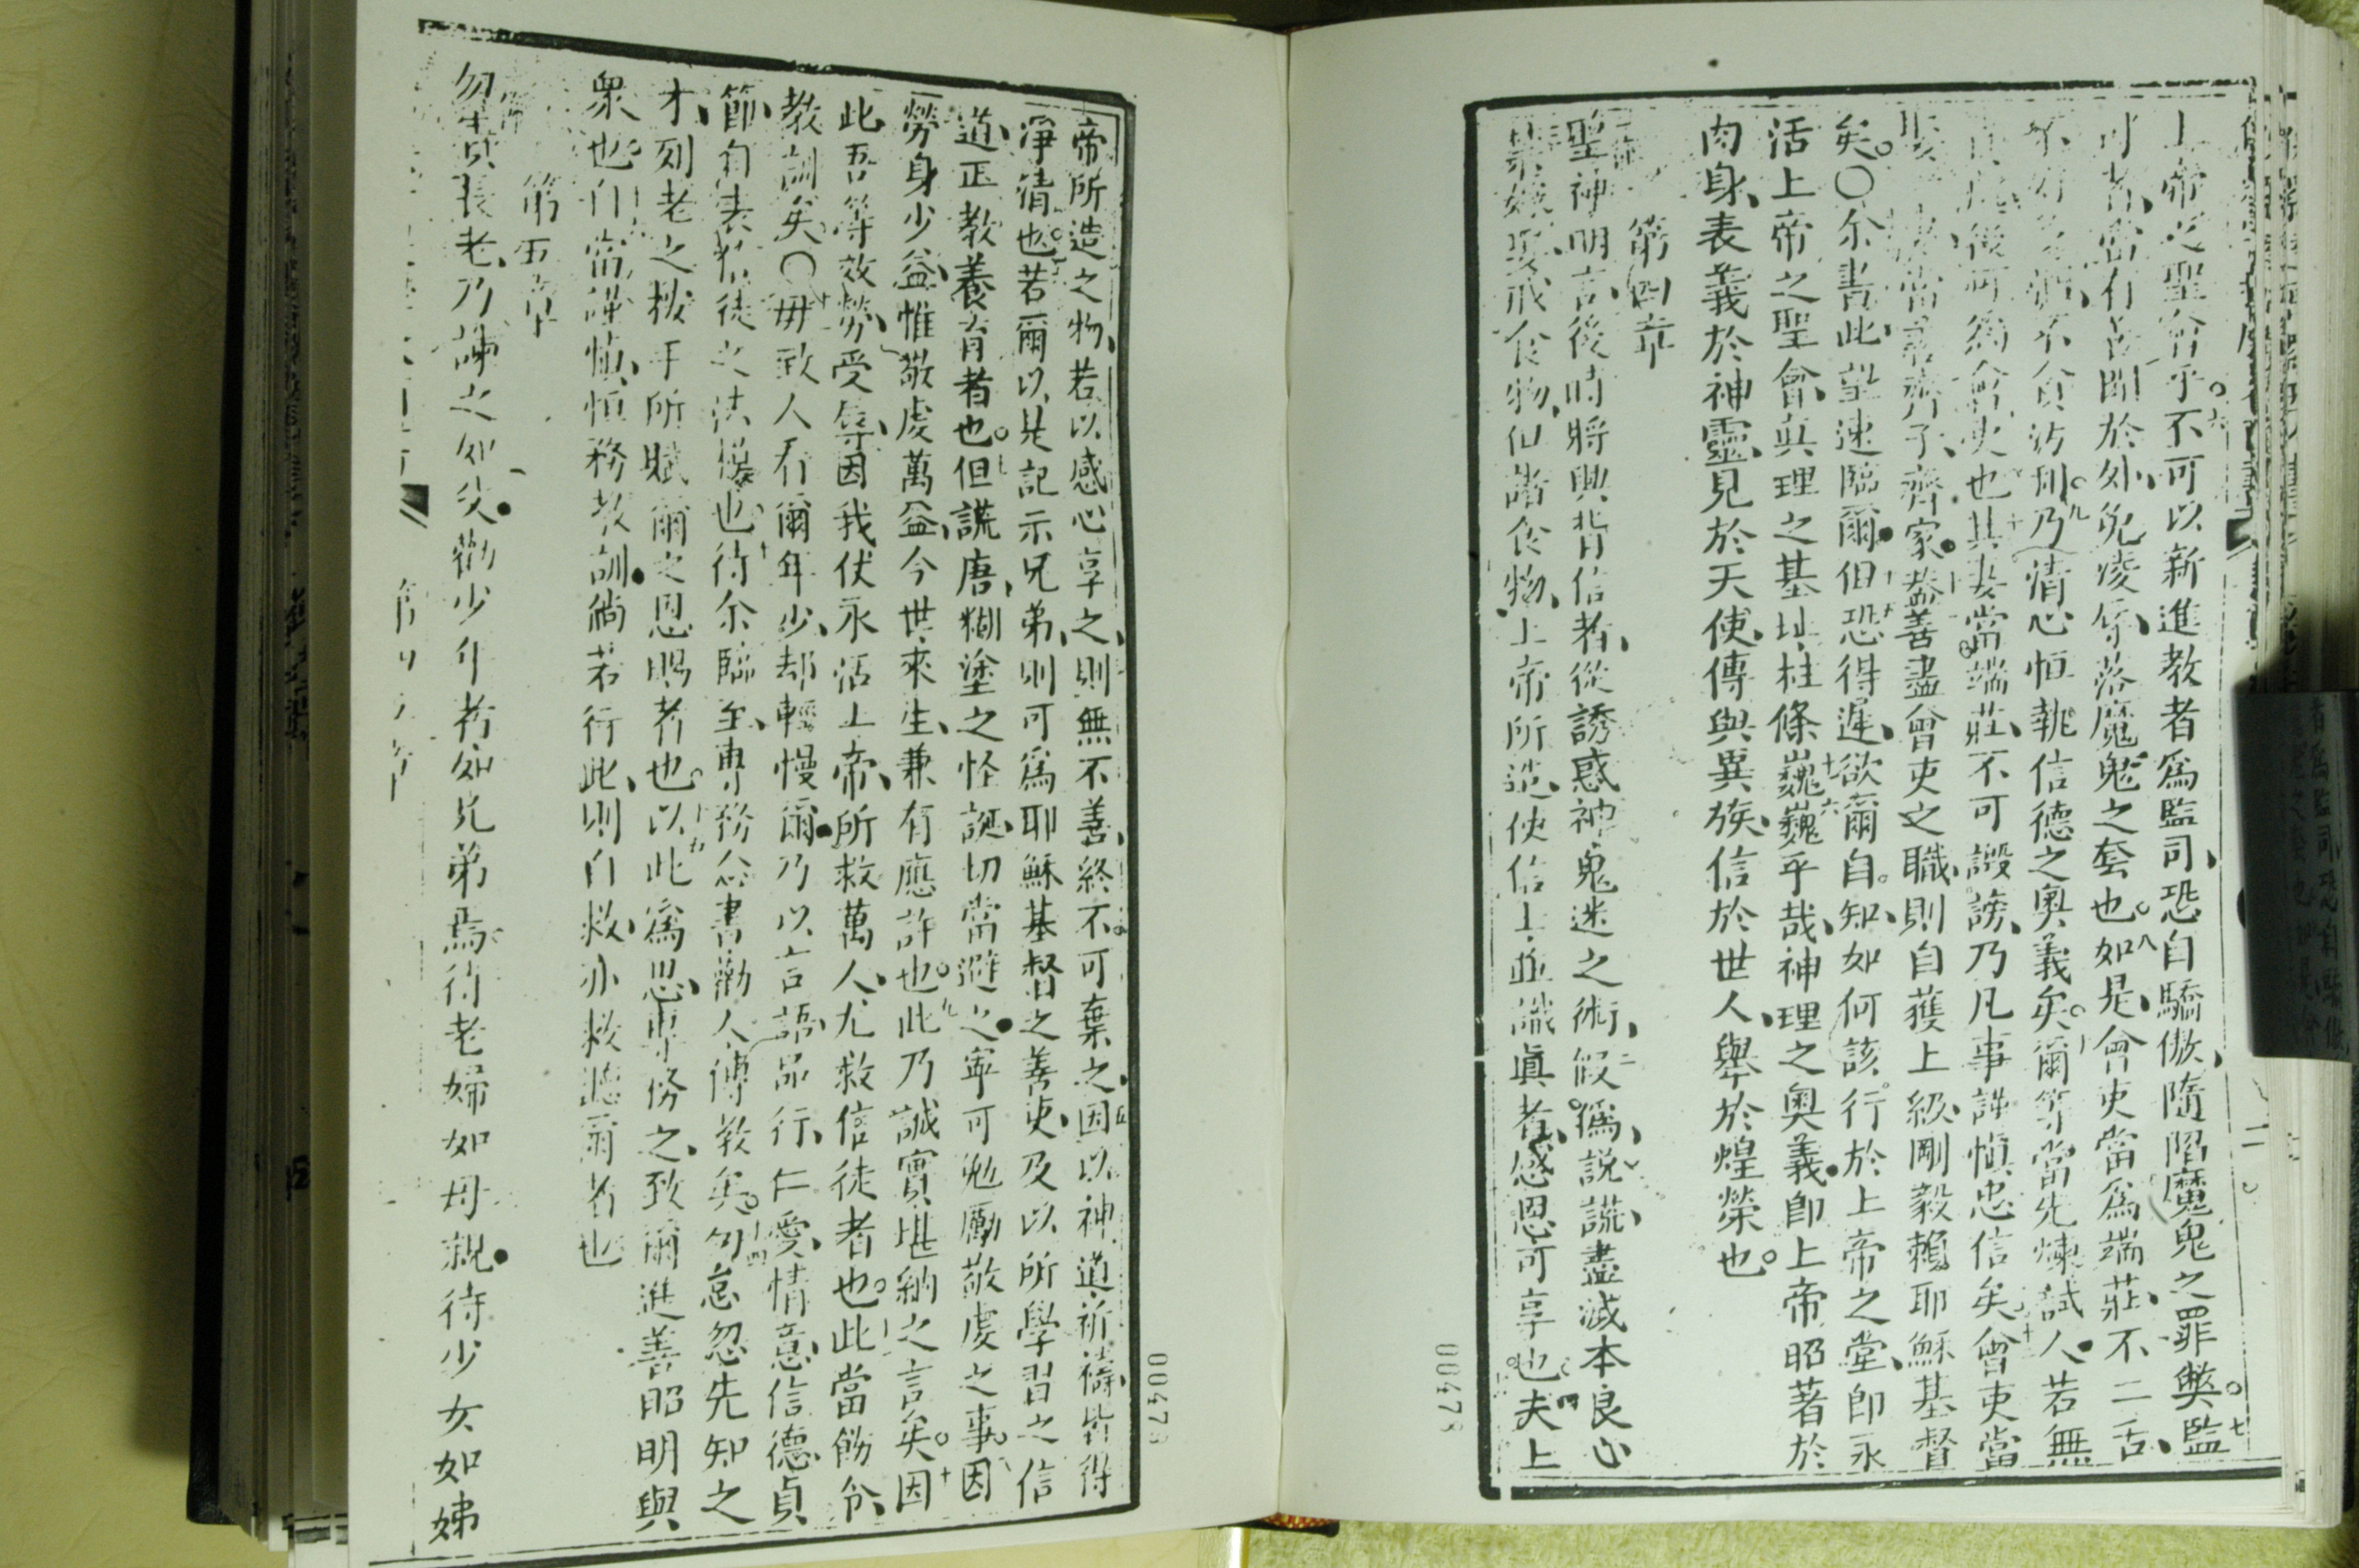 上帝之聖會乎不可以新進教者爲監司恐自驕傲隨陷魔鬼之罪弊監
可者當有善聞於外免凌辱落魔鬼之套也如是會吏當爲端莊不二舌
不好多酒不貪沾利乃清心恒執信德之奧義矣爾等當先煉試人若無
後可爲會吏也其妻當端莊不可譭謗乃凡事謹愼忠信矣會吏當
妻當善齊子齊家葢善盡會吏之職則自獲上級剛毅賴耶穌基督
矣○余書此望速臨爾但恐得遲欲爾自知如何該行於上帝之堂卽永
活上帝之聖會眞理之基址柱條巍巍乎哉神理之奧義卽上帝昭著於
肉身表義於神靈見於天使傳與異族信於世人舉於煌榮也
第四章
聖神明言後時將興背信者從誘惑神鬼迷之術假爲說謊盡滅本良心
禁嫁娶戒食物但諸食物上帝所造使信上並識眞者感恩可享也夫上
帝所造之物若以感心享之則無不善終不可棄之因以神道祈禱皆得
淨清也若爾以是記示兄弟則可爲耶穌基督之善吏及以所學習之信
道正教養育者也但謊唐糊塗之怪誕切當避之寧可勉勵敬虔之事因
勞身少益惟敬虔萬益今世來生兼有應許也此乃誠實堪納之言矣因
此吾等效勞受辱因我伏永活上帝所救萬人尤救信徒者也此當飭令
教訓矣○毋致人看爾年少却輕慢爾乃以言語品行仁愛情意信德貞
節自表爲徒之法樣也待余臨至專務念書勸人傳教矣勿怠忽先知之
才列老之按手所賦爾之恩賜者也以此爲思專務之致爾進善昭明與
衆也自當謹愼恒務教訓倘若行此則自救亦救聽爾者也
第五章
勿責長老乃諫之如父勸少年者如兄弟焉待老婦如母親待少女如姊
00478
00478